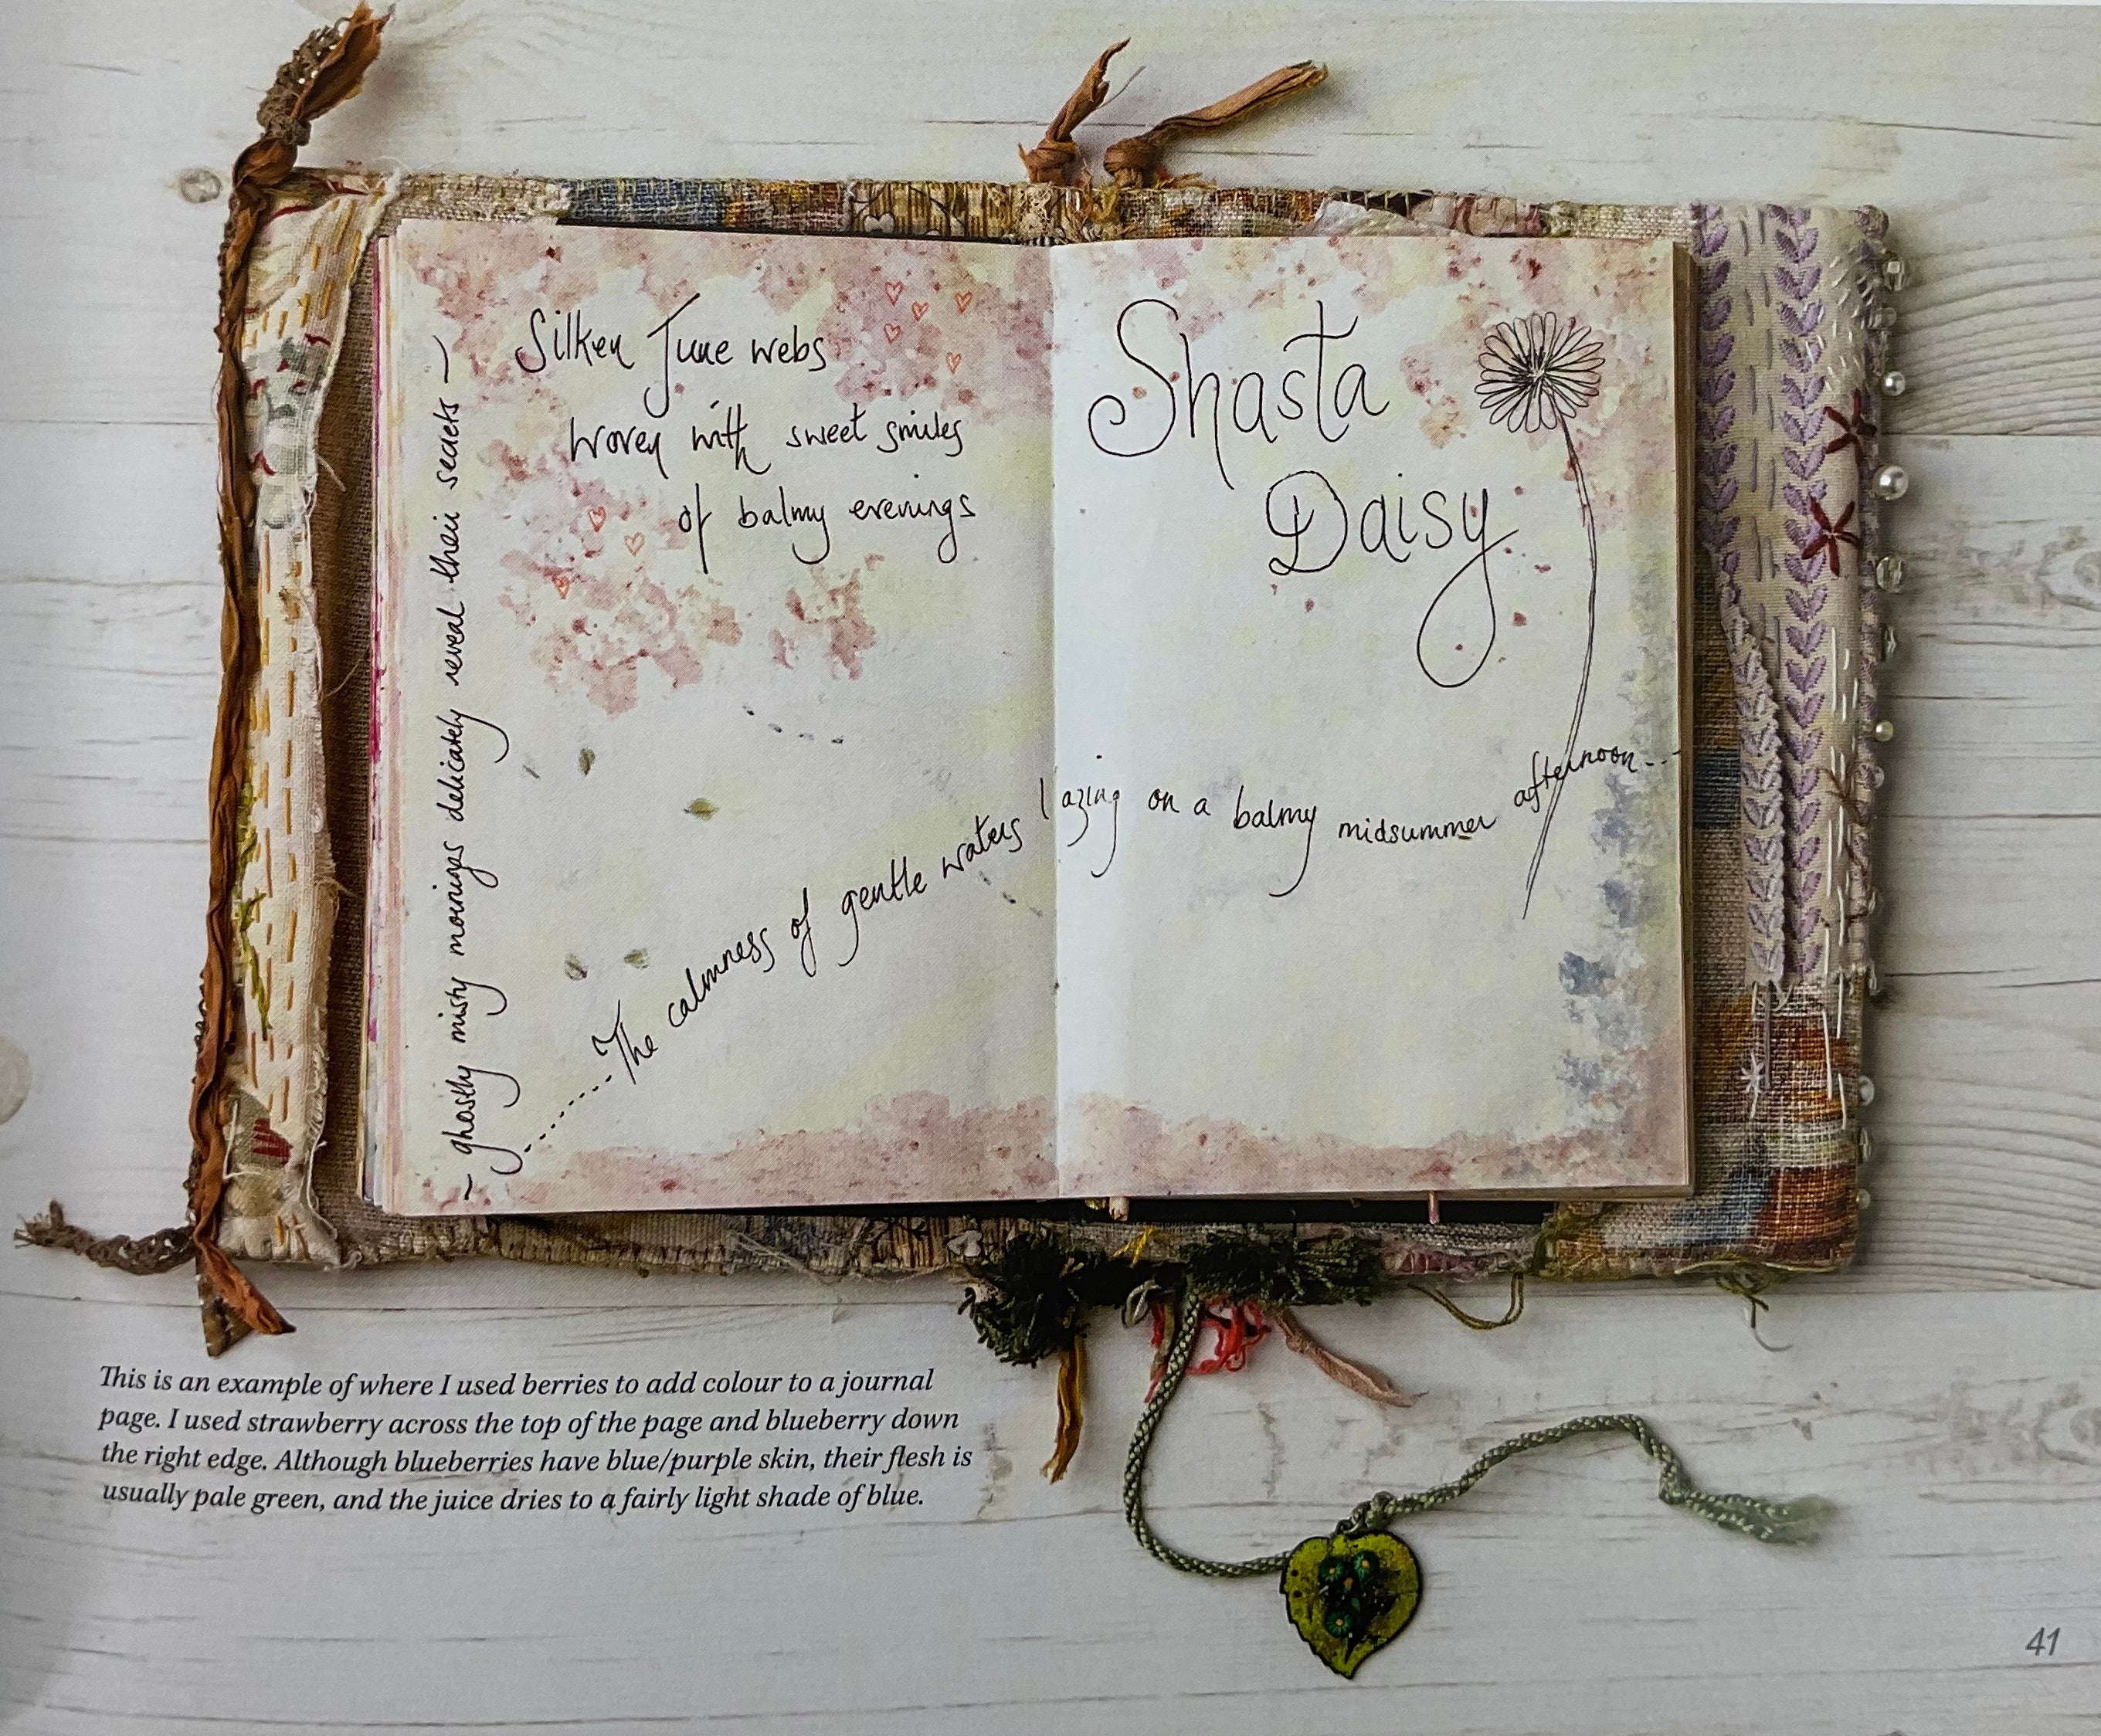 Silken June webs
woven with sweet smiles
of balmy evenings
~ ghostly misty mornings delicately reveal their secrets ~
Shasta
Daisy
......The calmness of gentle waters lazing on a balmy midsummer afternoon...
This is an example of where I used berries to add colour to a journal
page. I used strawberry across the top of the page and blueberry down
the right edge. Although blueberries have blue/purple skin, their flesh is
usually pale green, and the juice dries to a fairly light shade of blue.
41